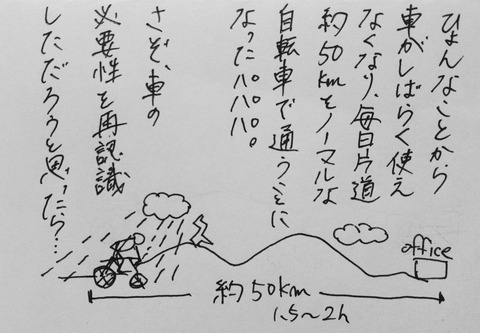 ひょんなことから
車がしばらく使え
なくなり、毎日片道
約50kmをノーマルな
自転車で通うことに
なったパパパ。
さぞ、車の
必要性を再認識
しただろうと思ったら…
office
約50km
1.5〜2h